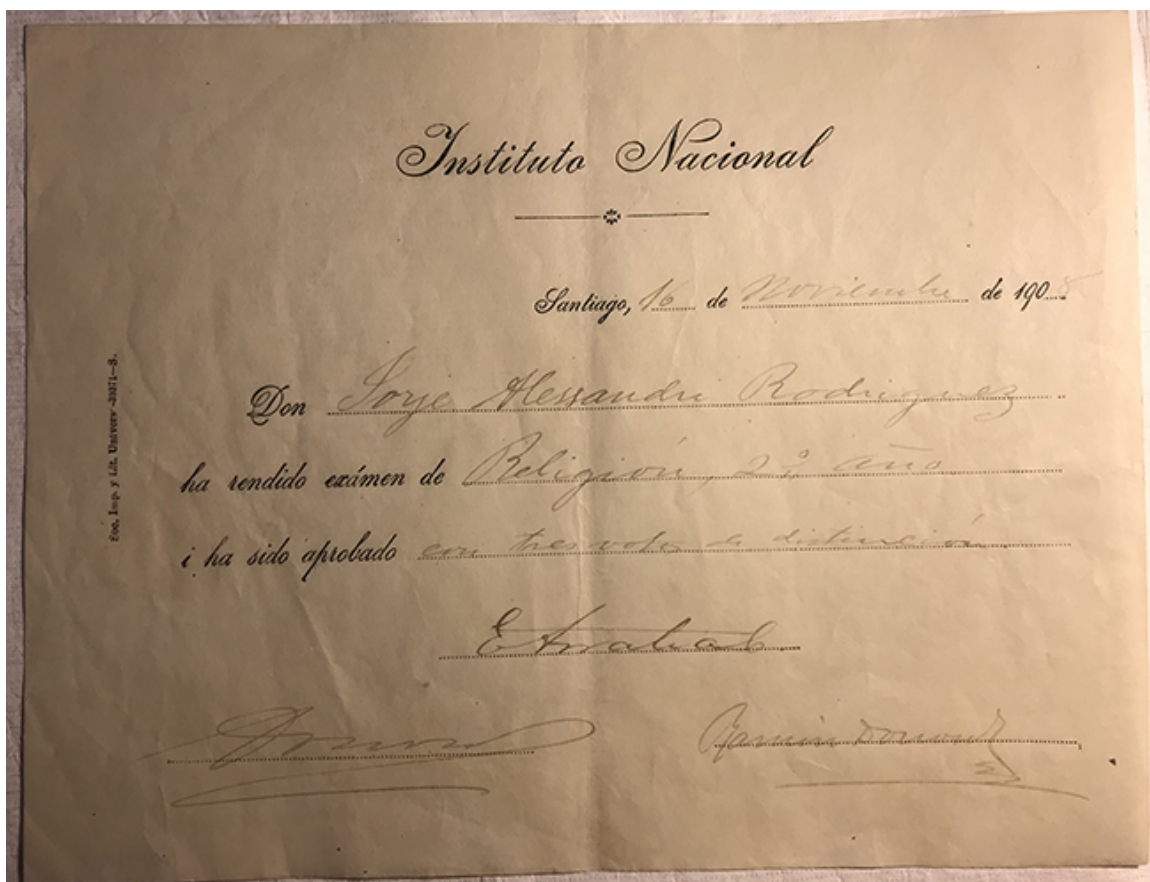 Instituto Nacional
Santiago, 16 de Noviembre de 1908
Don Jorje Alessandri Rodriguez
ha rendido exámen de Religión, 2º año
i ha sido aprobado con tres votos de distinción
Soc. Imp. y Lit. Univers